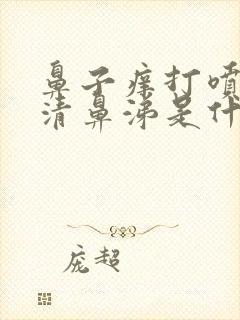 鼻子痒打喷
清鼻涕是什
庞超